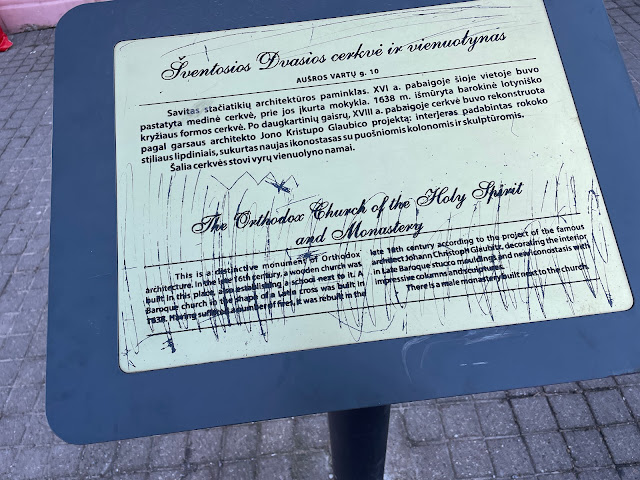 Šventosios Dvasios cerkvė ir vienuolynas
AUŠROS VARTŲ g. 10
Savitas stačiatikių architektūros paminklas. XVI a. pabaigoje šioje vietoje buvo
pastatyta medinė cerkvė, prie jos įkurta mokykla. 1638 m. išmūryta barokinė lotyniško
kryžiaus formos cerkvė. Po daugkartinių gaisrų, XVIII a. pabaigoje cerkvė buvo rekonstruota
pagal garsaus architekto Jono Kristupo Glaubico projektą: interjeras padabintas rokoko
stiliaus lipdiniais, sukurtas naujas ikonostasas su puošniomis kolonomis ir skulptūromis.
Šalia cerkvės stovi vyrų vienuolyno namai.
The Orthodox Church of the Holy Spirit
and Monastery
This is a distinctive monument of Orthodox
architecture. In the late 16th century, a wooden church was
built in this place, also establishing a school next to it. A
Baroque church in the shape of a Latin cross was built in
1638. Having suffered a number of fires, it was rebuilt in the
late 18th century according to the project of the famous
architect Johann Christoph Glaubitz, decorating the interior
in Late Baroque stucco mouldings and new iconostasis with
impressive columns and sculptures.
There is a male monastery built next to the church.